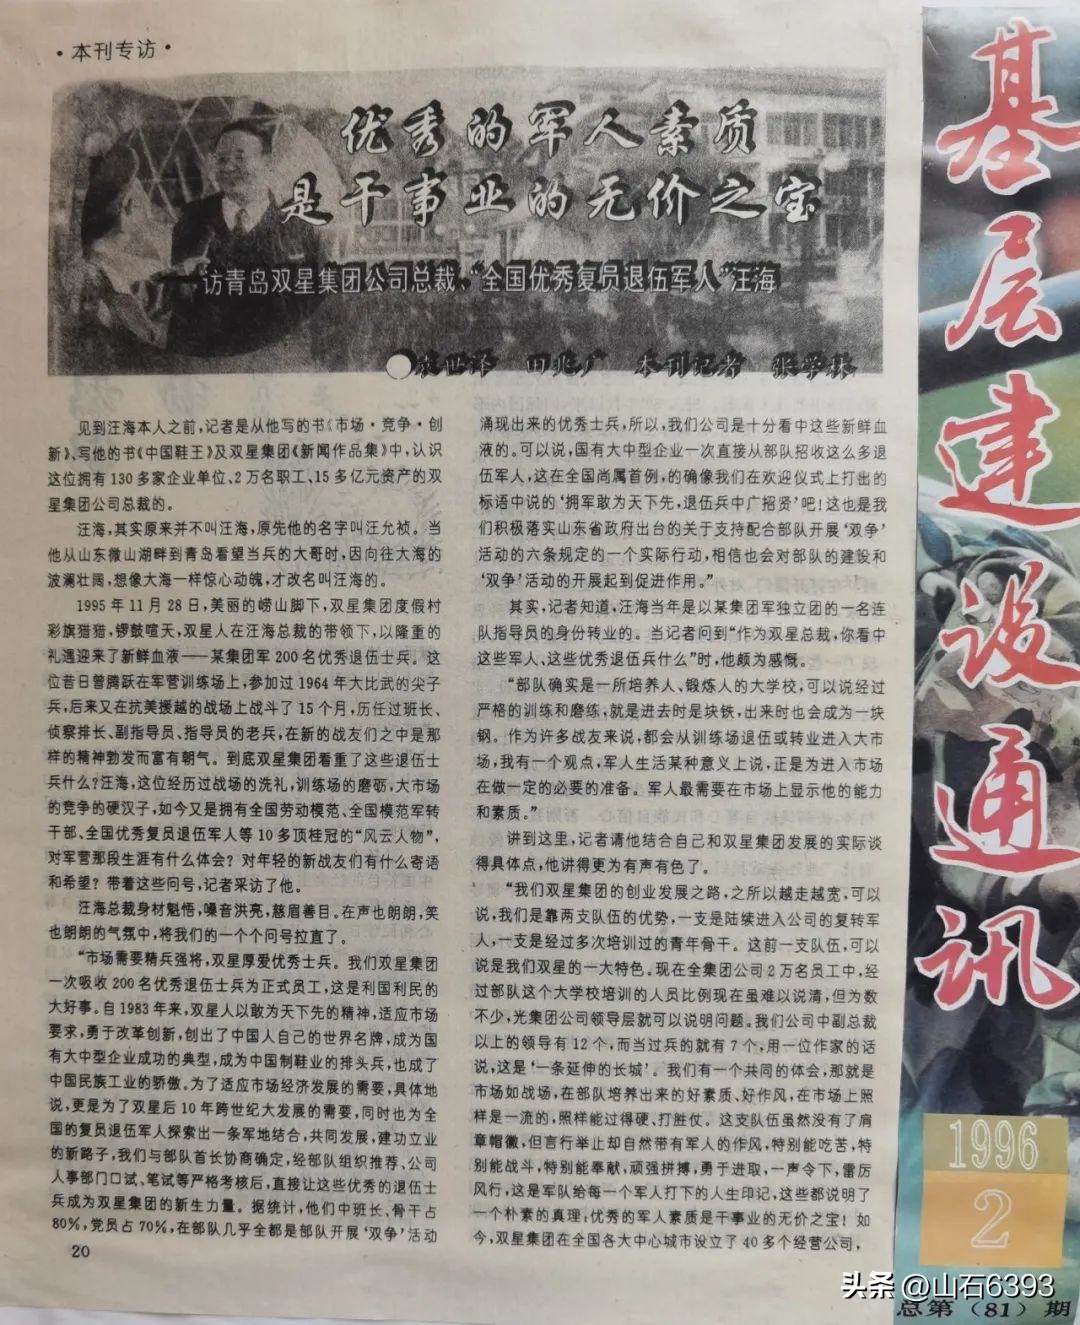 ·本刊专访·
优秀的军人素质
是干事业的无价之宝
——访青岛双星集团公司总裁、“全国优秀复员退伍军人”汪海
●袁世泽 田兆广 本刊记者 张学林
见到汪海本人之前,记者是从他写的书《市场·竞争·创
新》、写他的书《中国鞋王》及双星集团《新闻作品集》中,认识
这位拥有130多家企业单位、2万名职工、15多亿元资产的双
星集团公司总裁的。
汪海,其实原来并不叫汪海,原先他的名字叫汪允祯。当
他从山东微山湖畔到青岛看望当兵的大哥时,因向往大海的
波澜壮阔,想像大海一样惊心动魄,才改名叫汪海的。
1995年11月28日,美丽的崂山脚下,双星集团度假村
彩旗猎猎,锣鼓喧天,双星人在汪海总裁的带领下,以隆重的
礼遇迎来了新鲜血液——某集团军200名优秀退伍士兵。这
位昔日曾腾跃在军营训练场上,参加过1964年大比武的尖子
兵,后来又在抗美援越的战场上战斗了15个月,历任过班长、
侦察排长、副指导员、指导员的老兵,在新的战友们之中是那
样的精神勃发而富有朝气。到底双星集团看重了这些退伍士
兵什么?汪海,这位经历过战场的洗礼,训练场的磨砺,大市场
的竞争的硬汉子,如今又是拥有全国劳动模范、全国模范军转
干部、全国优秀复员退伍军人等10多顶桂冠的“风云人物”,
对军营那段生涯有什么体会?对年轻的新战友们有什么寄语
和希望?带着这些问号,记者采访了他。
汪海总裁身材魁悟,嗓音洪亮,慈眉善目。在声也朗朗,笑
也朗朗的气氛中,将我们的一个个问号拉直了。
“市场需要精兵强将,双星厚爱优秀士兵。我们双星集团
一次吸收200名优秀退伍士兵为正式员工,这是利国利民的
大好事。自1983年来,双星人以敢为天下先的精神,适应市场
要求,勇于改革创新,创出了中国人自己的世界名牌,成为国
有大中型企业成功的典型,成为中国制鞋业的排头兵,也成了
中国民族工业的骄傲。为了适应市场经济发展的需要,具体地
说,更是为了双星后10年跨世纪大发展的需要,同时也为全
国的复员退伍军人探索出一条军地结合,共同发展,建功立业
的新路子,我们与部队首长协商确定,经部队组织推荐、公司
人事部门口试、笔试等严格考核后,直接让这些优秀的退伍士
兵成为双星集团的新生力量。据统计,他们中班长、骨干占
80%,党员占70%,在部队几乎全都是部队开展‘双争’活动
20
涌现出来的优秀士兵,所以,我们公司是十分看中这些新鲜血
液的。可以说,国有大中型企业一次直接从部队招收这么多退
伍军人,这在全国尚属首例,的确像我们在欢迎仪式上打出的
标语中说的‘拥军敢为天下先,退伍兵中广招贤’吧!这也是我
们积极落实山东省政府出台的关于支持配合部队开展‘双争’
活动的六条规定的一个实际行动,相信也会对部队的建设和
‘双争’活动的开展起到促进作用。”
其实,记者知道,汪海当年是以某集团军独立团的一名连
队指导员的身份转业的。当记者问到“作为双星总裁,你看中
这些军人、这些优秀退伍兵什么”时,他颇为感慨。
“部队确实是一所培养人、锻炼人的大学校,可以说经过
严格的训练和磨练,就是进去时是块铁,出来时也会成为一块
钢。作为许多战友来说,都会从训练场退伍或转业进入大市
场,我有一个观点,军人生活某种意义上说,正是为进入市场
在做一定的必要的准备。军人最需要在市场上显示他的能力
和素质。”
讲到这里,记者请他结合自己和双星集团发展的实际谈
得具体点,他讲得更为有声有色了。
“我们双星集团的创业发展之路,之所以越走越宽,可以
说,我们是靠两支队伍的优势,一支是陆续进入公司的复转军
人,一支是经过多次培训过的青年骨干。这前一支队伍,可以
说是我们双星的一大特色。现在全集团公司2万名员工中,经
过部队这个大学校培训的人员比例现在虽难以说清,但为数
不少,光集团公司领导层就可以说明问题。我们公司中副总裁
以上的领导有12个,而当过兵的就有7个,用一位作家的话
说,这是‘一条延伸的长城’。我们有一个共同的体会,那就是
市场如战场,在部队培养出来的好素质、好作风,在市场上照
样是一流的,照样能过得硬、打胜仗。这支队伍虽然没有了肩
章帽徽,但言行举止却自然带有军人的作风,特别能吃苦,特
别能战斗,特别能奉献,顽强拼搏,勇于进取,一声令下,雷厉
风行,这是军队给每一个军人打下的人生印记,这些都说明了
一个朴素的真理:优秀的军人素质是干事业的无价之宝!如
今,双星集团在全国各大中心城市设立了40多个经营公司,
基层建设通讯
1996
2
总第(81)期
头条 @山石6393